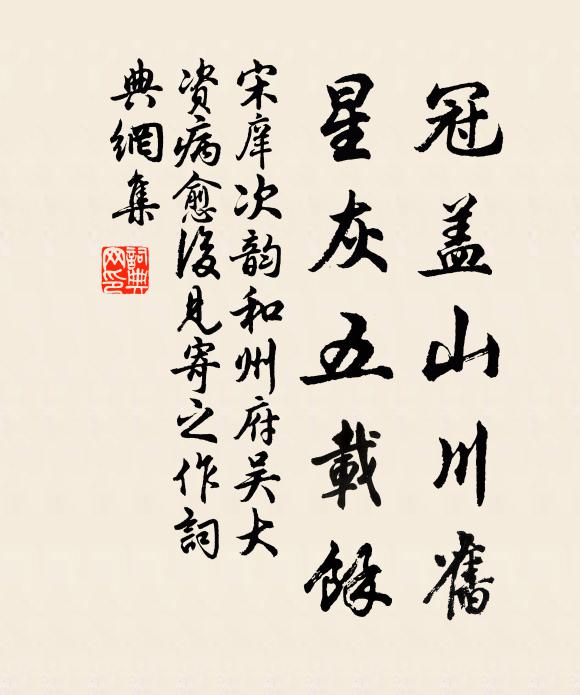 冠盖山川舊
星灰五載餘
宋庠次韵和州府吴大
资病愈後見寄之作詞
典網集
詞典網印